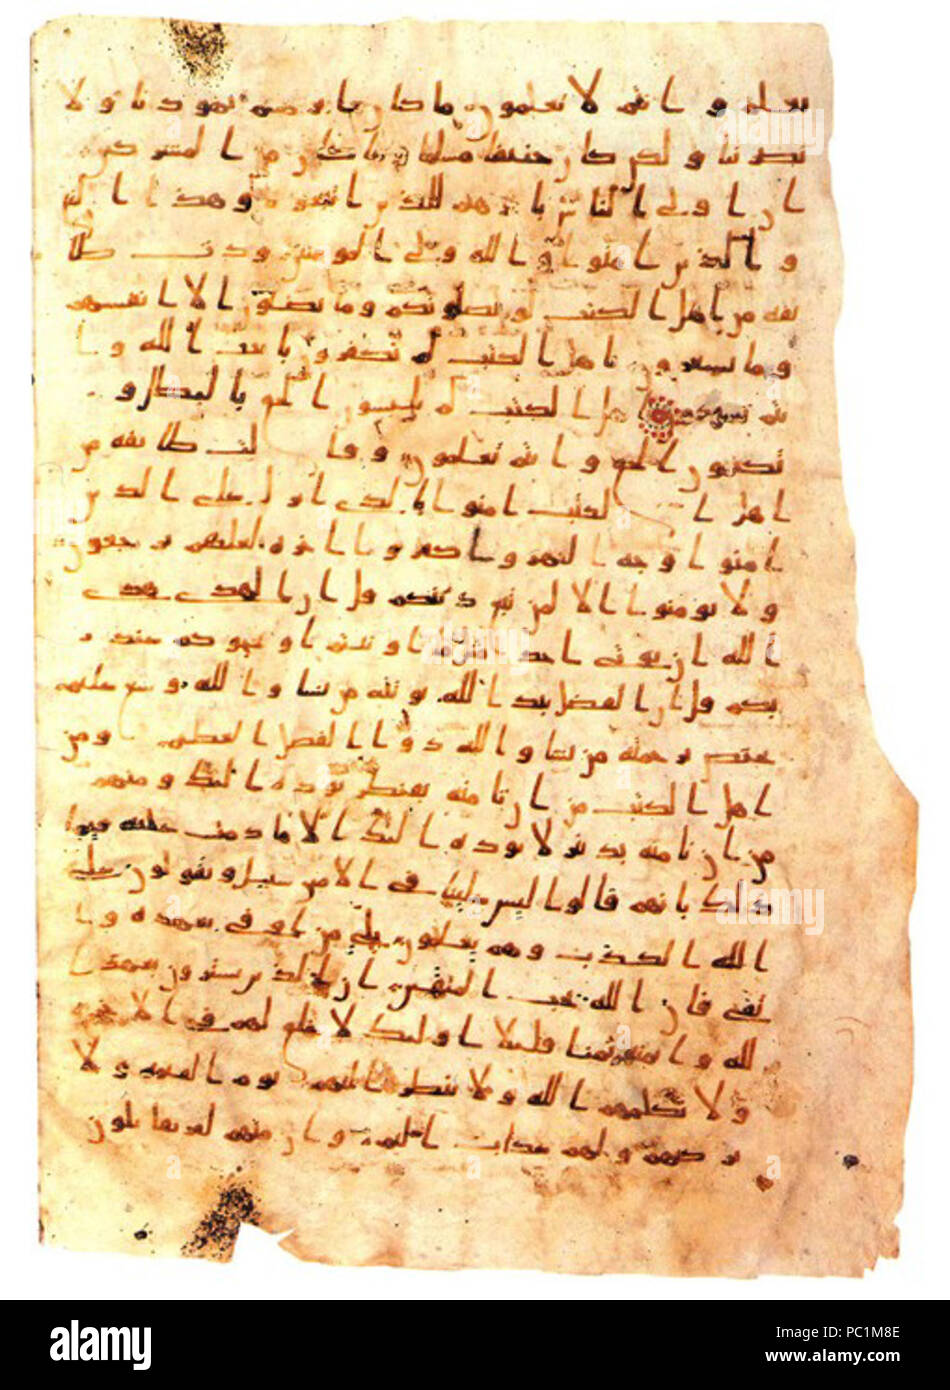 يعلم وانتم لا تعلمون ما كان ابرهيم يهوديا ولا
نصرنيا ولكن كان حنيفا مسلما وما كان من المشركين
ان اولى الناس بابرهيم للذين اتبعوه وهذا النبي
والذين امنوا والله ولى المومنين ودت طا
ئفه من اهل الكتب لو يضلونكم وما يضلون الا انفسهم
وما يشعرون ياهل الكتب لم تكفرون بايت الله وا
نتم تشهدون ياهل الكتب لم تلبسون الحق بالبطل و
تكتمون الحق وانتم تعلمون وقالت طائفه من
اهل الكتب امنوا بالذى انزل على الذين
امنوا وجه النهر واكفروا اخره لعلهم يرجعون
ولا تومنوا الا لمن تبع دينكم قل ان الهدى هدى
الله ان يوتى احد مثل ما اوتيتم او يحجوكم عند ر
بكم قل ان الفضل بيد الله يوتيه من يشا والله وسع عليم
يختص برحمته من يشا والله ذو الفضل العظيم ومن
اهل الكتب من ان تامنه بقنطر يوده اليك ومنهم
من ان تامنه بدينر لا يوده اليك الا ما دمت عليه قيما
ذلك بانهم قالوا ليس علينا فى الامين سبيل ويقولون على
الله الكذب وهم يعلمون بلى من اوفى بعهده وا
تقى فان الله يحب المتقين ان الذين يشترون بعهد ا
لله وايمنهم ثمنا قليلا اوليك لا خلق لهم فى الاخره
ولا يكلمهم الله ولا ينظر اليهم يوم القيمه ولا
يزكيهم ولهم عذاب اليم وان منهم لفريقا يلون
alamy
Image ID: PC1M8E
www.alamy.com